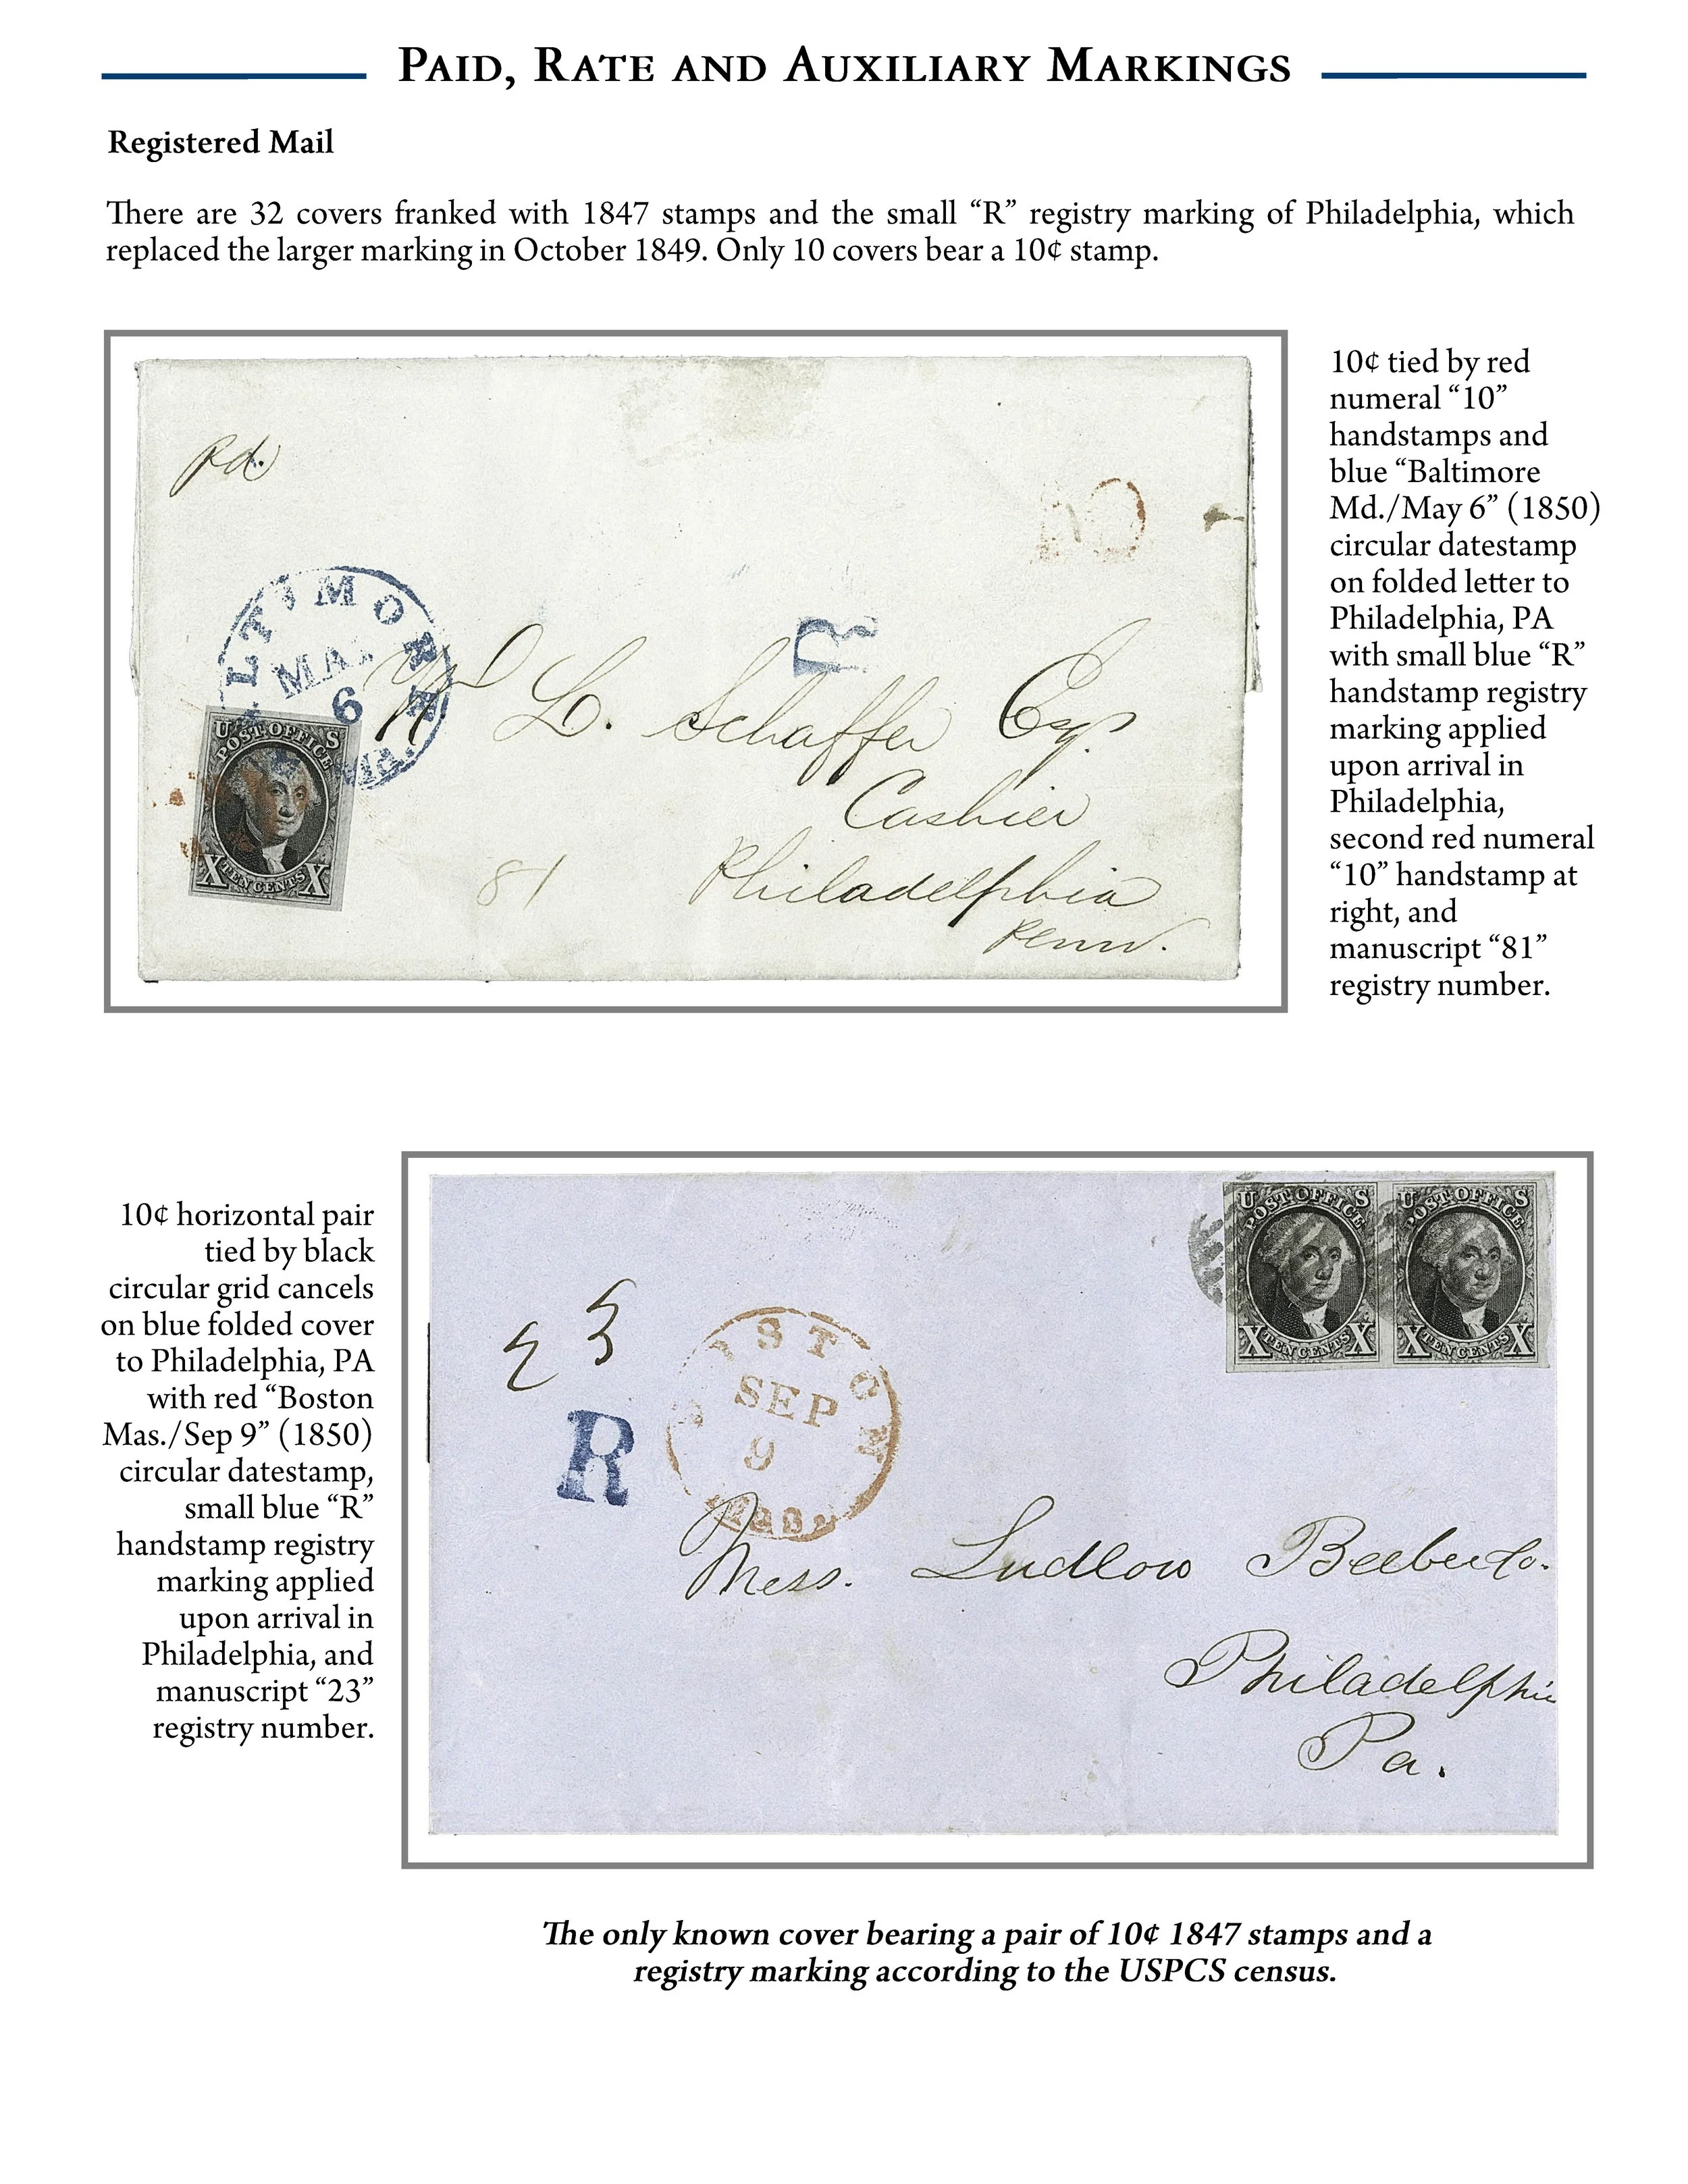 PAID, RATE AND AUXILIARY MARKINGS
Registered Mail
There are 32 covers franked with 1847 stamps and the small “R” registry marking of Philadelphia, which
replaced the larger marking in October 1849. Only 10 covers bear a 10¢ stamp.
pd.
10
LTIMORE
MAY
6
Md.
R
U S
POST OFFICE
X TEN CENTS X
Wm L. Schaffer Esqr.
Cashier
81
Philadelphia
Penn.
10¢ tied by red
numeral “10”
handstamps and
blue “Baltimore
Md./May 6” (1850)
circular datestamp
on folded letter to
Philadelphia, PA
with small blue “R”
handstamp registry
marking applied
upon arrival in
Philadelphia,
second red numeral
“10” handstamp at
right, and
manuscript “81”
registry number.
10¢ horizontal pair
tied by black
circular grid cancels
on blue folded cover
to Philadelphia, PA
with red “Boston
Mas./Sep 9” (1850)
circular datestamp,
small blue “R”
handstamp registry
marking applied
upon arrival in
Philadelphia, and
manuscript “23”
registry number.
23
R
BOSTON
SEP
9
U S
POST OFFICE
X TEN CENTS X
U S
POST OFFICE
X TEN CENTS X
Mess. Ludlow Beebe & Co.
Philadelphia
Pa.
The only known cover bearing a pair of 10¢ 1847 stamps and a
registry marking according to the USPCS census.